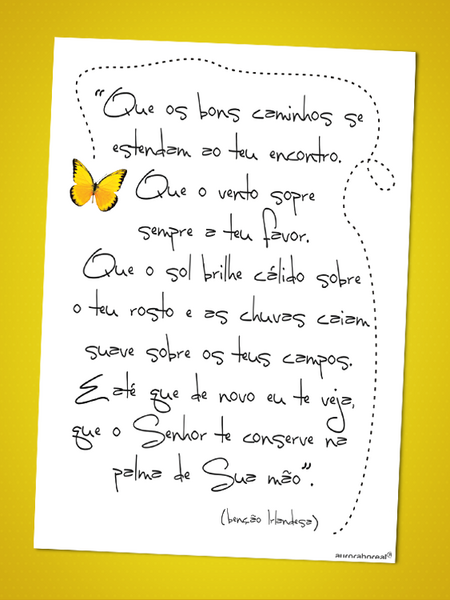 "Que os bons caminhos se
estendam ao teu encontro.
Que o vento sopre
sempre a teu favor.
Que o sol brilhe cálido sobre
o teu rosto e as chuvas caiam
suave sobre os teus campos.
E até que de novo eu te veja,
que o Senhor te conserve na
palma de Sua mão".
(benção Irlandesa)